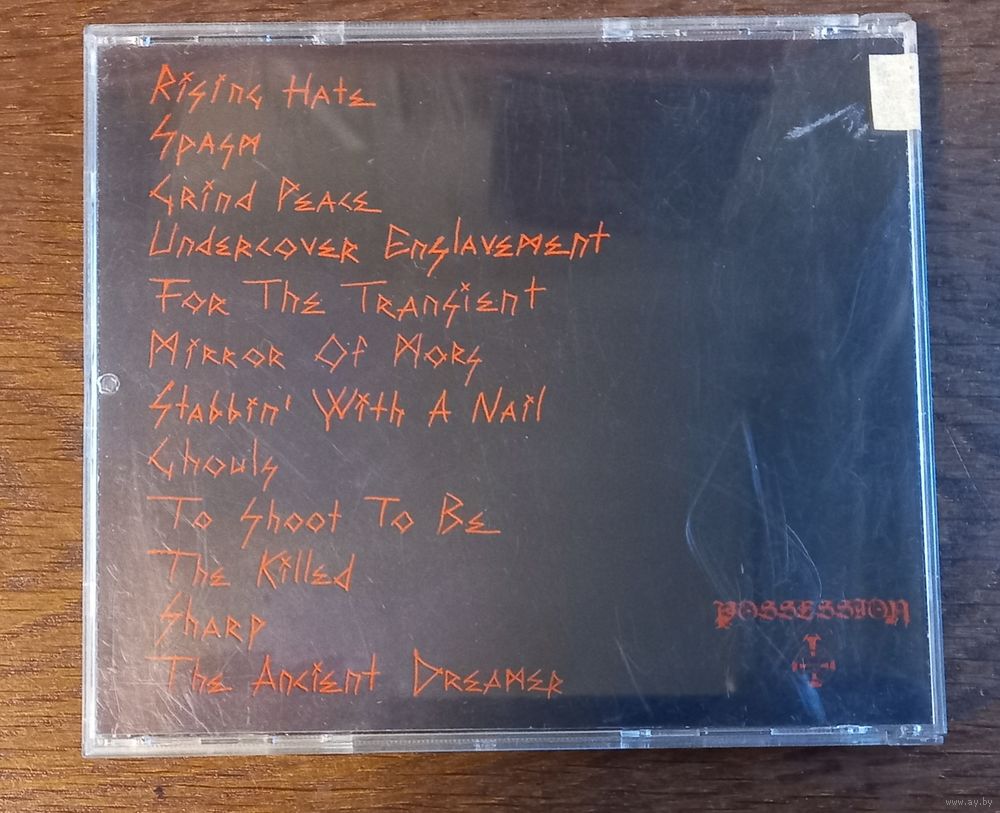 Rising Hate
Spasm
Grind Peace
Undercover Enslavement
For The Transient
Mirror Of Mors
Stabbin' With A Nail
Ghouls
To Shoot To Be
The Killed
Sharp
The Ancient Dreamer
POSSESSION
www.ay.by